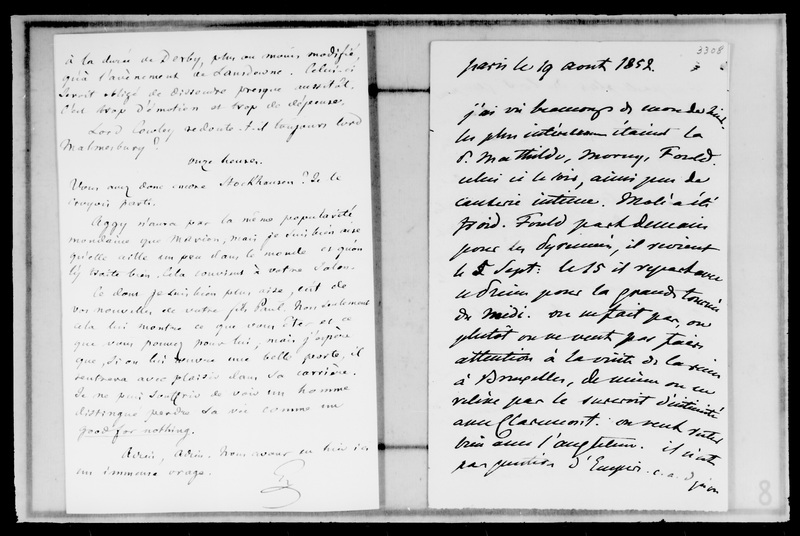 à la durée de Derby, plus ou moins modifié,
qu'à l'avènement de Lansdowne. Celui-ci
serait obligé de dissoudre presque aussitôt.
C'est trop d'émotion et trop de dépense.
Lord Cowley redoute-t-il toujours lord
Malmesbury ?
onze heures.
Vous avez donc encore Stockhausen ? Je le
croyois parti.
Aggy n'aura pas la même popularité
mondaine que Marion, mais je suis bien aise
qu'elle aille un peu dans le monde et qu'on
l'y traite bien. Cela convient à votre salon.
Ce dont je suis bien plus aise, c'est de
vos nouvelles de votre fils Paul. Non seulement
cela lui montre ce que vous êtes et ce
que vous pouvez pour lui, mais j'espère
que, si on lui rouvre une belle porte, il
rentrera avec plaisir dans sa carrière.
Je ne puis souffrir de voir un homme
distingué perdre sa vie comme un
good for nothing.
Adieu, Adieu. Nous avons eu hier ici
un immense orage.
G
3308
paris le 19 aout 1852.
j'ai vu beaucoup de monde hier
les plus intéressans étaient la
P. Mathilde, Morny, Fould.
celui ci le soir, ainsi pas de
causerie intime. Molé a été
froid. Fould part demain
pour les Pyrennées, il revient
le 5 Sept: le 15 il repart avec
le Prince pour la grande tournée
du midi. on ne fait pas, ou
plutôt on ne veut pas faire
attention à la visite de la reine
à Bruxelles, de même on ne
relève pas le surcroit d'intimité
avec Claremont. on veut rester
bien avec l'angleterre. il n'est
pas question d'Empire. c. a. d. qu'on
8